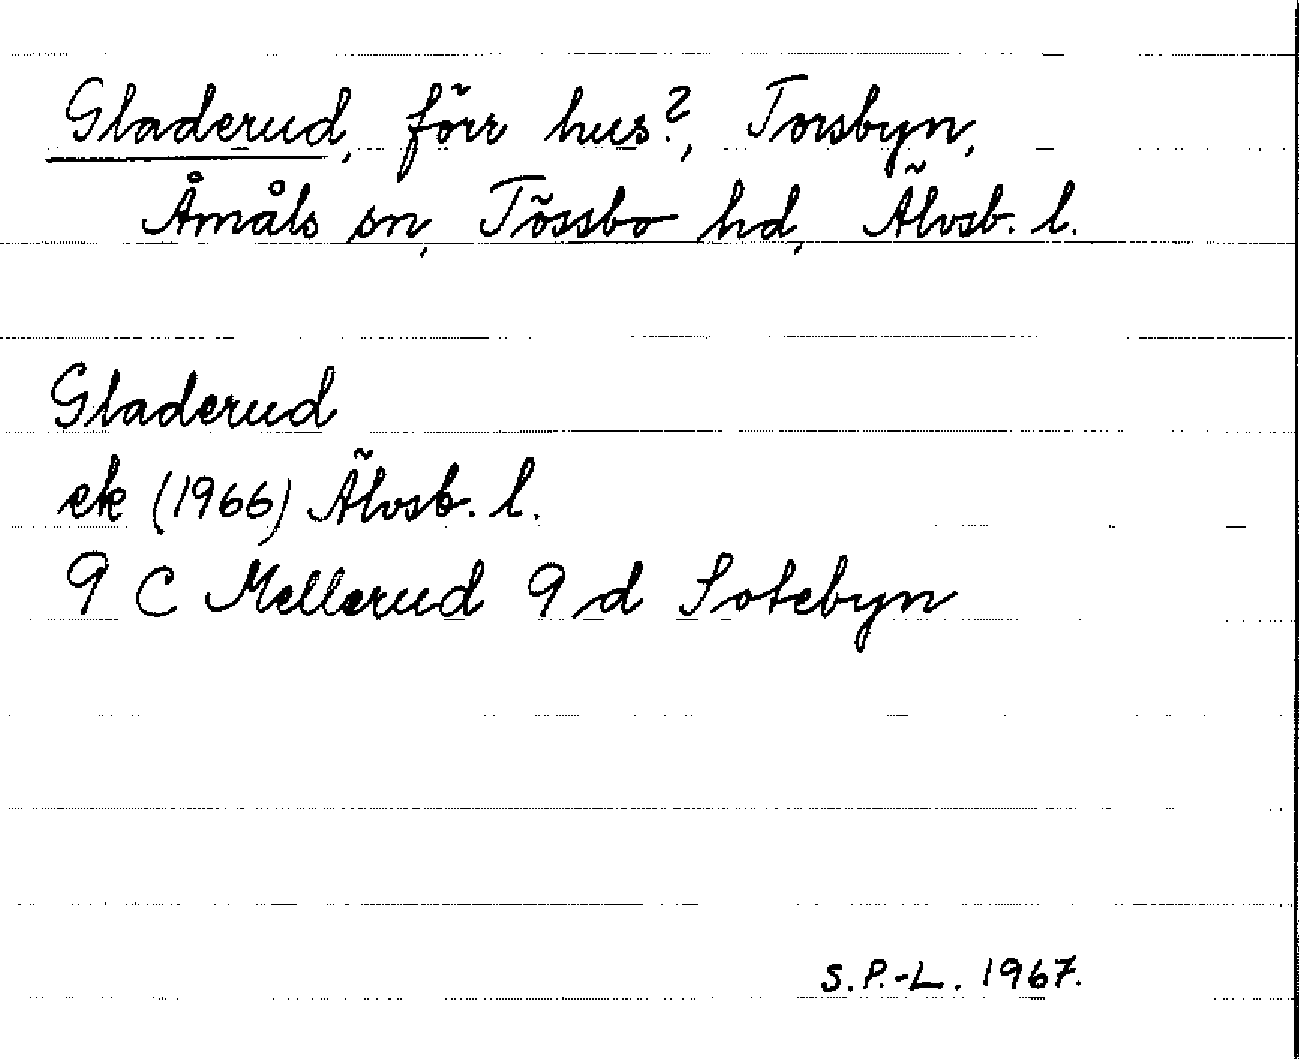 Gladerud, förr hus?, Torsbyn,
Åmåls sn, Tössbo hd, Älvsb. l.
Gladerud
ek (1966) Älvsb. l.
9 C Mellerud 9 d Sotebyn
S.P.-L. 1967.